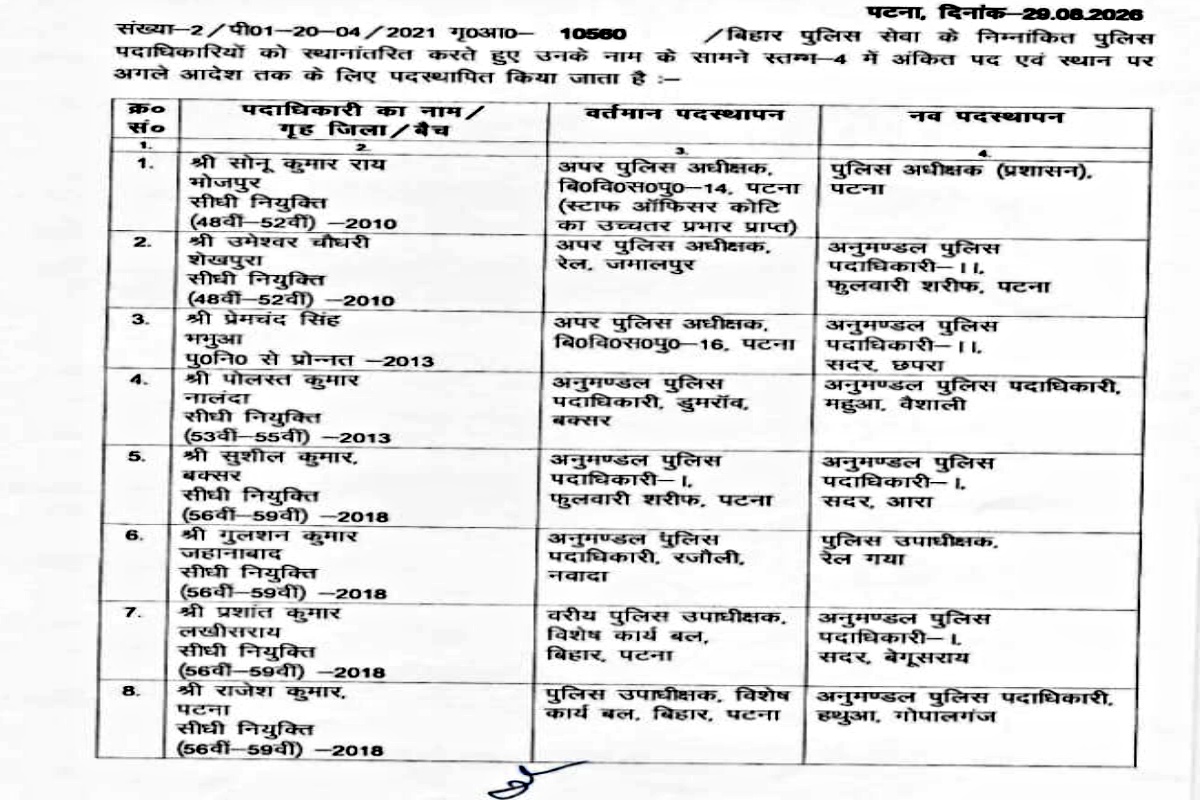 पटना, दिनांक–29.06.2026
संख्या–2/पी01–20–04/2021 गृ0आ0– 10560 /बिहार पुलिस सेवा के निम्नांकित पुलिस
पदाधिकारियों को स्थानांतरित करते हुए उनके नाम के सामने स्तम्भ–4 में अंकित पद एवं स्थान पर
अगले आदेश तक के लिए पदस्थापित किया जाता है :–
क्र० सं० पदाधिकारी का नाम/ गृह जिला/बैच वर्तमान पदस्थापन नव पदस्थापन
1. 2. 3. 4.
1. श्री सोनू कुमार राय अपर पुलिस अधीक्षक, पुलिस अधीक्षक (प्रशासन),
भोजपुर बि0वि0स0पु0–14, पटना पटना
सीधी नियुक्ति (स्टाफ ऑफिसर कोटि
(48वीं–52वीं) –2010 का उच्चतर प्रभार प्राप्त)
2. श्री उमेश्वर चौधरी अपर पुलिस अधीक्षक, अनुमण्डल पुलिस
शेखपुरा रेल, जमालपुर पदाधिकारी–।।,
सीधी नियुक्ति फुलवारी शरीफ, पटना
(48वीं–52वीं) –2010
3. श्री प्रेमचंद सिंह अपर पुलिस अधीक्षक, अनुमण्डल पुलिस
भभुआ बि0वि0स0पु0–16, पटना पदाधिकारी–।।,
पु0नि0 से प्रोन्नत –2013 सदर, छपरा
4. श्री पोलस्त कुमार अनुमण्डल पुलिस अनुमण्डल पुलिस पदाधिकारी,
नालंदा पदाधिकारी, डुमरॉव, महुआ, वैशाली
सीधी नियुक्ति बक्सर
(53वीं–55वीं) –2013
5. श्री सुशील कुमार, अनुमण्डल पुलिस अनुमण्डल पुलिस
बक्सर पदाधिकारी–।, पदाधिकारी–।,
सीधी नियुक्ति फुलवारी शरीफ, पटना सदर, आरा
(56वीं–59वीं) –2018
6. श्री गुलशन कुमार अनुमण्डल पुलिस पुलिस उपाधीक्षक,
जहानाबाद पदाधिकारी, रजौली, रेल गया
सीधी नियुक्ति नवादा
(56वीं–59वीं) –2018
7. श्री प्रशांत कुमार वरीय पुलिस उपाधीक्षक, अनुमण्डल पुलिस
लखीसराय विशेष कार्य बल, पदाधिकारी–।,
सीधी नियुक्ति बिहार, पटना सदर, बेगूसराय
(56वीं–59वीं) –2018
8. श्री राजेश कुमार, पुलिस उपाधीक्षक, विशेष अनुमण्डल पुलिस पदाधिकारी,
पटना कार्य बल, बिहार, पटना हथुआ, गोपालगंज
सीधी नियुक्ति
(56वीं–59वीं) –2018